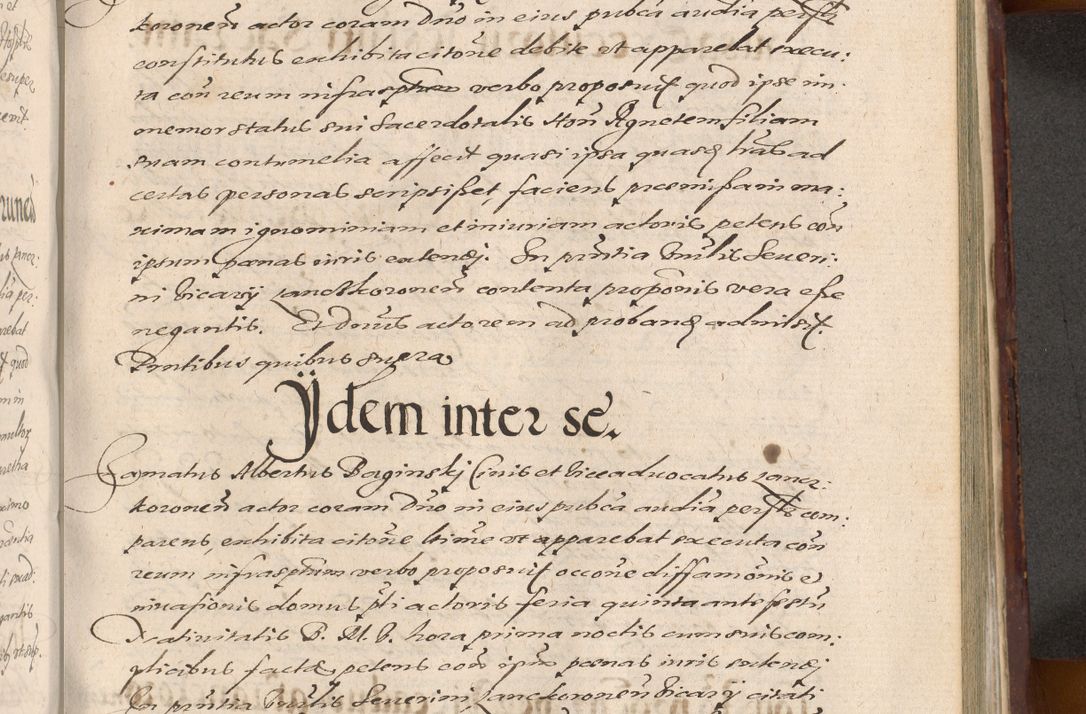 koronen̄ actor coram Dn̄o in eius pub̄ca audīa persl̄r
constitutus exhibita citōne debite ut apparebat execu:
ta con̄ reum infrasptum verbo proposuit quod ipse im:
memor status sui sacerdotalis Hon̄ Agnetem filiam
suam contumelia affecit quasi ipsa quasd̄ l̄ras ad
certas personas scripsisset, faciens praemissam ma:
ximam ignominiam et iniuriam actoris petens con̄
ipsum poenas iuris extendj. In pn̄tia Hn̄lis Seueri:
ni Vicarij Lanckkoronen̄ contenta propōnis vera esse
negantis. Et Dnus actorem ad proband̄ admisit.
Pn̄tibus quibus supra
Ydem inter se.
Famatus Albertus Baginskj Ciuis et Viceaduocatus Lancz:
koronen̄ actor coram Dn̄o in eius pub̄ca audīa persl̄r com:
parens, exhibita citōne l̄time ut apparebat executa con̄
reum infrasptum verbo proposuit occōne diffamōnis e
inuasionis domus p̄ti actoris feria quinta ante festū
Natiuitatis B. M. V. hora prima noctis cum suis com:
plicibus factae, petens con̄ ipsū poenas iuris extendj
In pn̄tia Hn̄lis Seuerini Lanckoronen̄ Vicarij citati